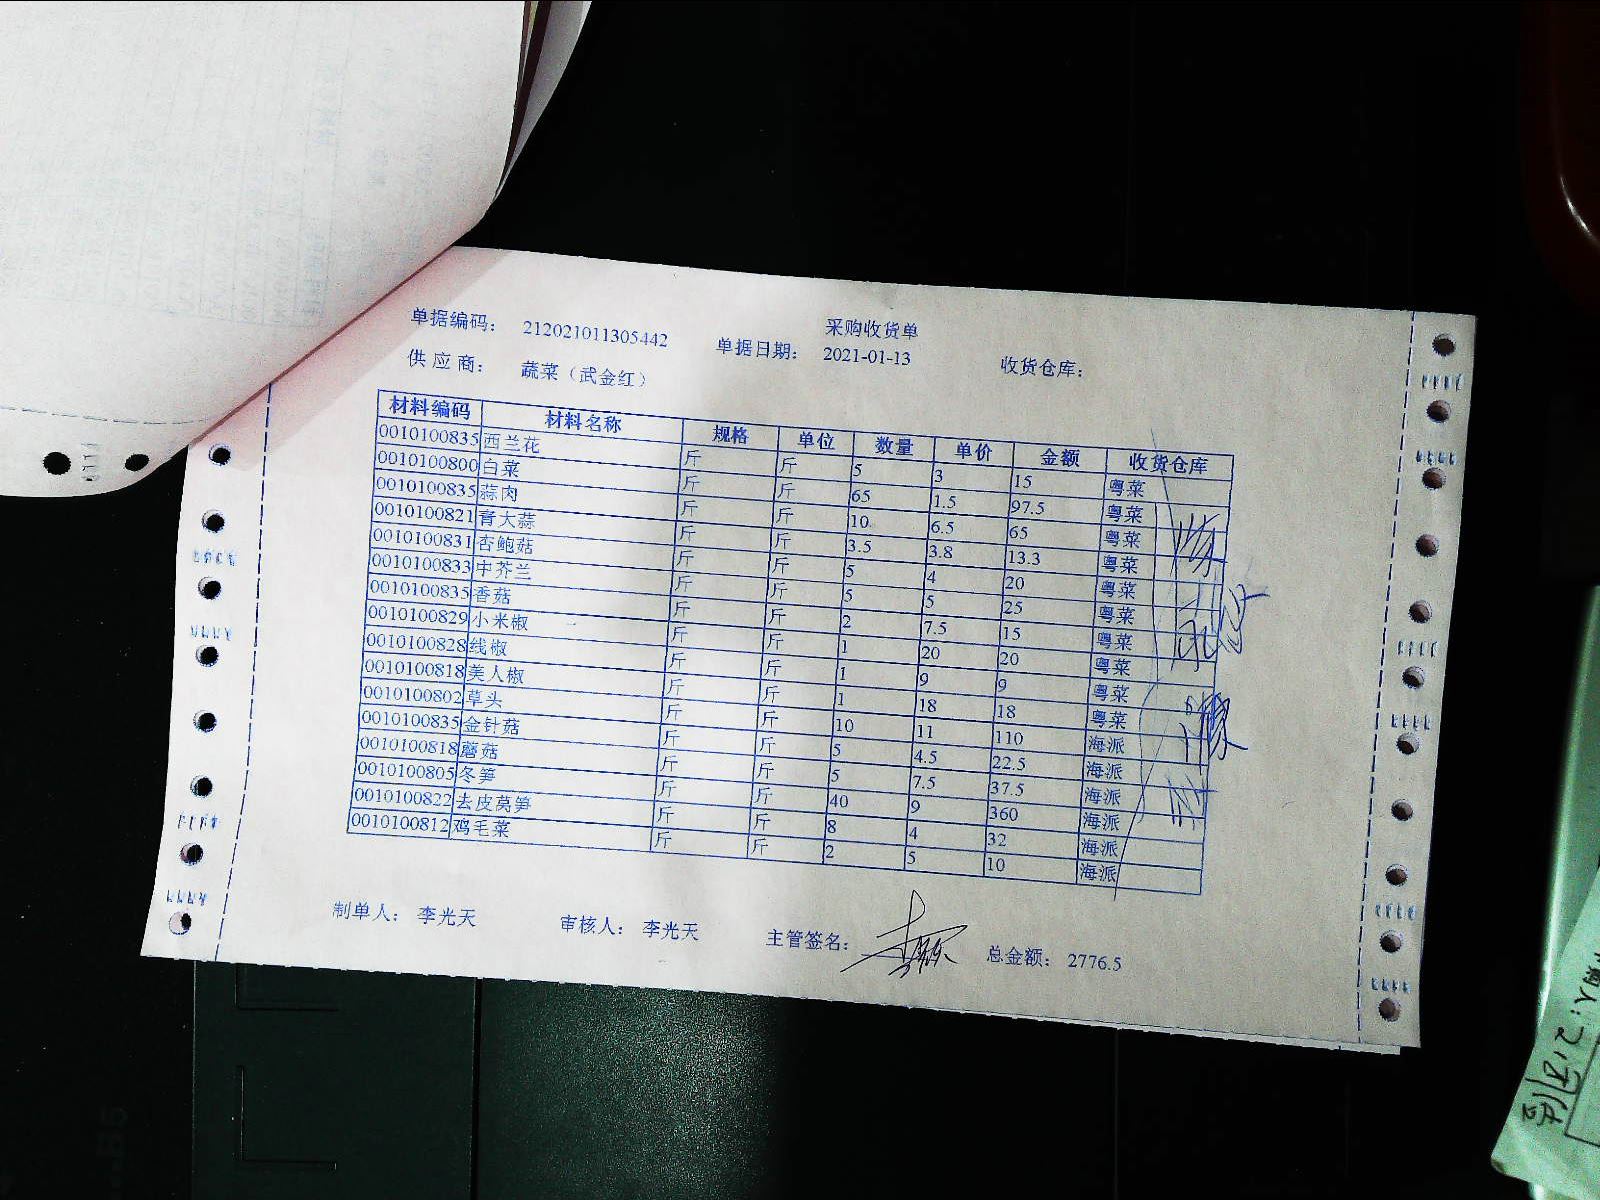 采购收货单
单据编码： 212021011305442 单据日期： 2021-01-13 收货仓库：
供 应 商： 蔬菜（武金红）
材料编码 材料名称 规格 单位 数量 单价 金额 收货仓库
0010100835 西兰花 斤 斤 5 3 15 粤菜
0010100800 白菜 斤 斤 65 1.5 97.5 粤菜
0010100835 蒜肉 斤 斤 10 6.5 65 粤菜
0010100821 青大蒜 斤 斤 3.5 3.8 13.3 粤菜
0010100831 杏鲍菇 斤 斤 5 4 20 粤菜
0010100833 中芥兰 斤 斤 5 5 25 粤菜
0010100835 香菇 斤 斤 2 7.5 15 粤菜
0010100829 小米椒 斤 斤 1 20 20 粤菜
0010100828 线椒 斤 斤 1 9 9 粤菜
0010100818 美人椒 斤 斤 1 18 18 粤菜
0010100802 草头 斤 斤 10 11 110 海派
0010100835 金针菇 斤 斤 5 4.5 22.5 海派
0010100818 蘑菇 斤 斤 5 7.5 37.5 海派
0010100805 冬笋 斤 斤 40 9 360 海派
0010100822 去皮莴笋 斤 斤 8 4 32 海派
0010100812 鸡毛菜 斤 斤 2 5 10 海派
制单人： 李光天 审核人： 李光天 主管签名： 总金额： 2776.5